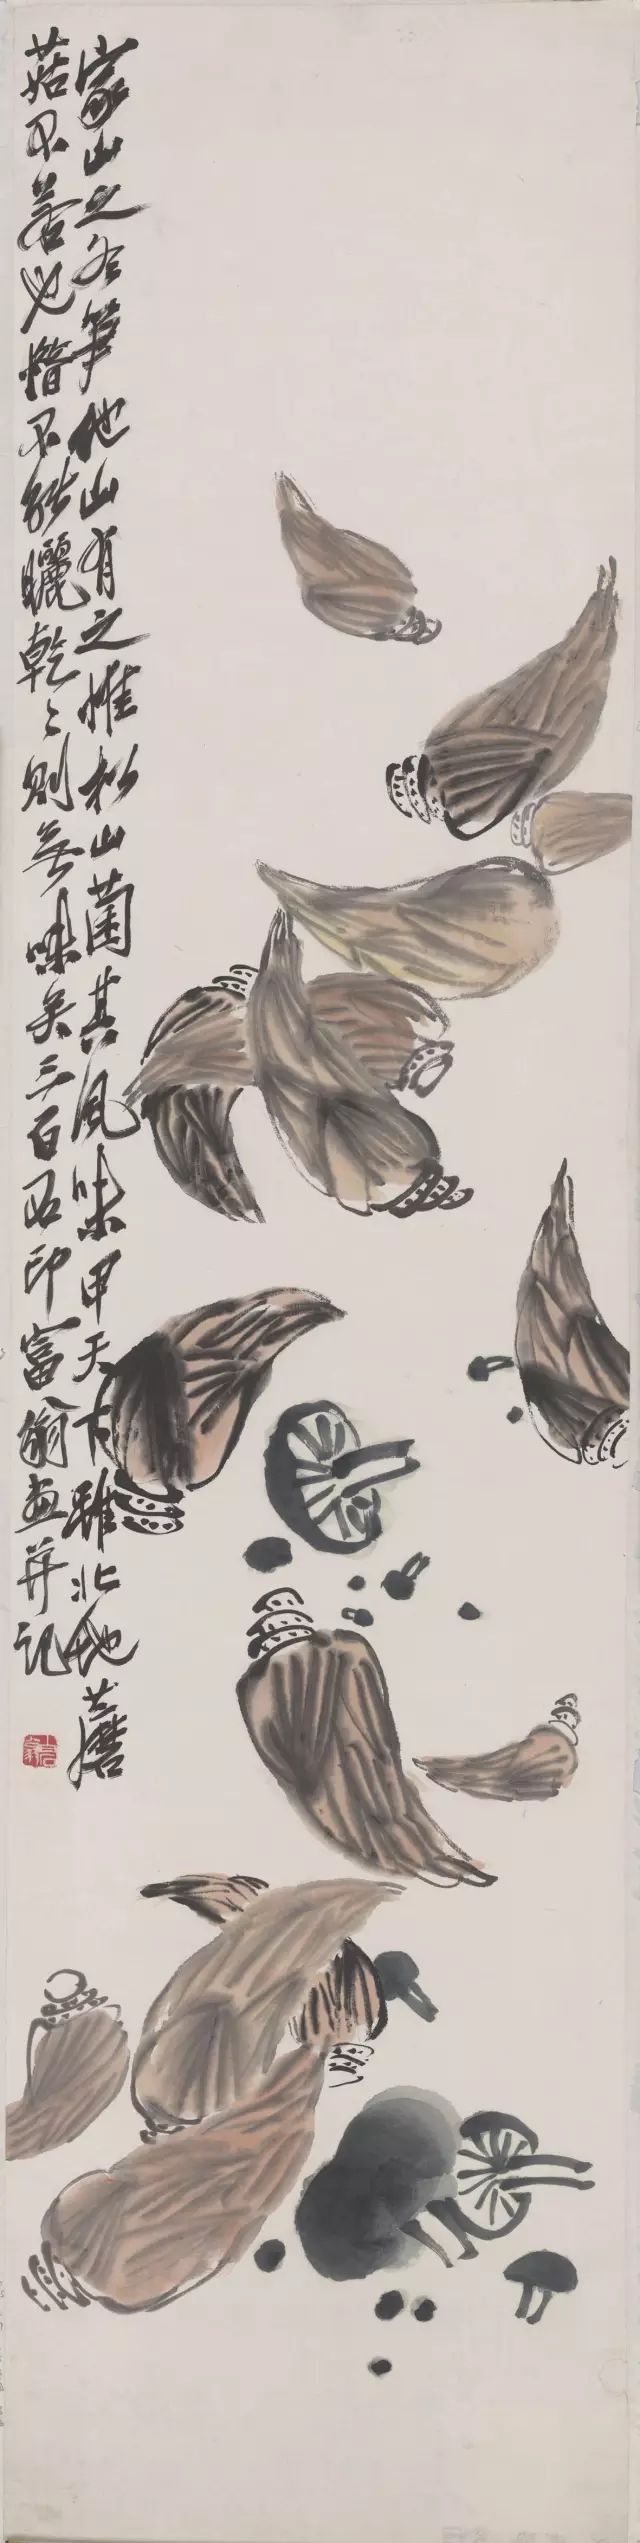 家山之冬笋他山有之惟松山菌其风味甲天下虽北地蘑
菇不若也惜不能曬乾乾则無味矣三百石印富翁画并记